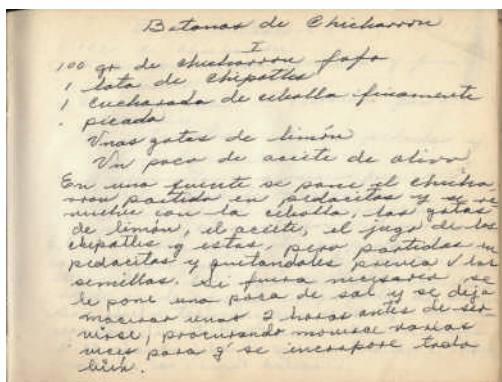 Botanas de Chicharron
I
100 gr de chicharron fofo
1 lata de chipotles
1 cucharada de cebolla finamente
picada
Unas gotas de limón
Un poco de aceite de olivo
En una fuente se pone el chicha
rron partido en pedacitos y se re
vuelve con la cebolla, las gotas
de limón, el aceite, el jugo de los
chipotles y estos, pero partidos en
pedacitos y quitandoles previa/ las
semillas. Si fuera necesario, se
le pone una poca de sal y se deja
macerar unas 2 horas antes de ser-
virse, procurando moverse varias
veces para q' se incorpore todo
bien.